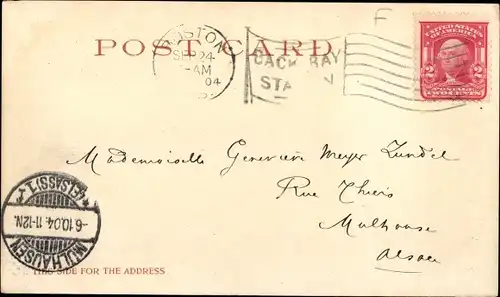 POST CARD
BOSTON
SEP 24
-AM
04
BACK BAY
STA
F
UNITED STATES
OF AMERICA
2 2
POSTAGE
TWO CENTS
Mademoiselle Geneviève Meyer Zundel
Rue Thiers
Mulhouse
Alsace
MÜLHAUSEN
-6.10.04.11-12N.
* (ELSASS) 1. *
THIS SIDE FOR THE ADDRESS